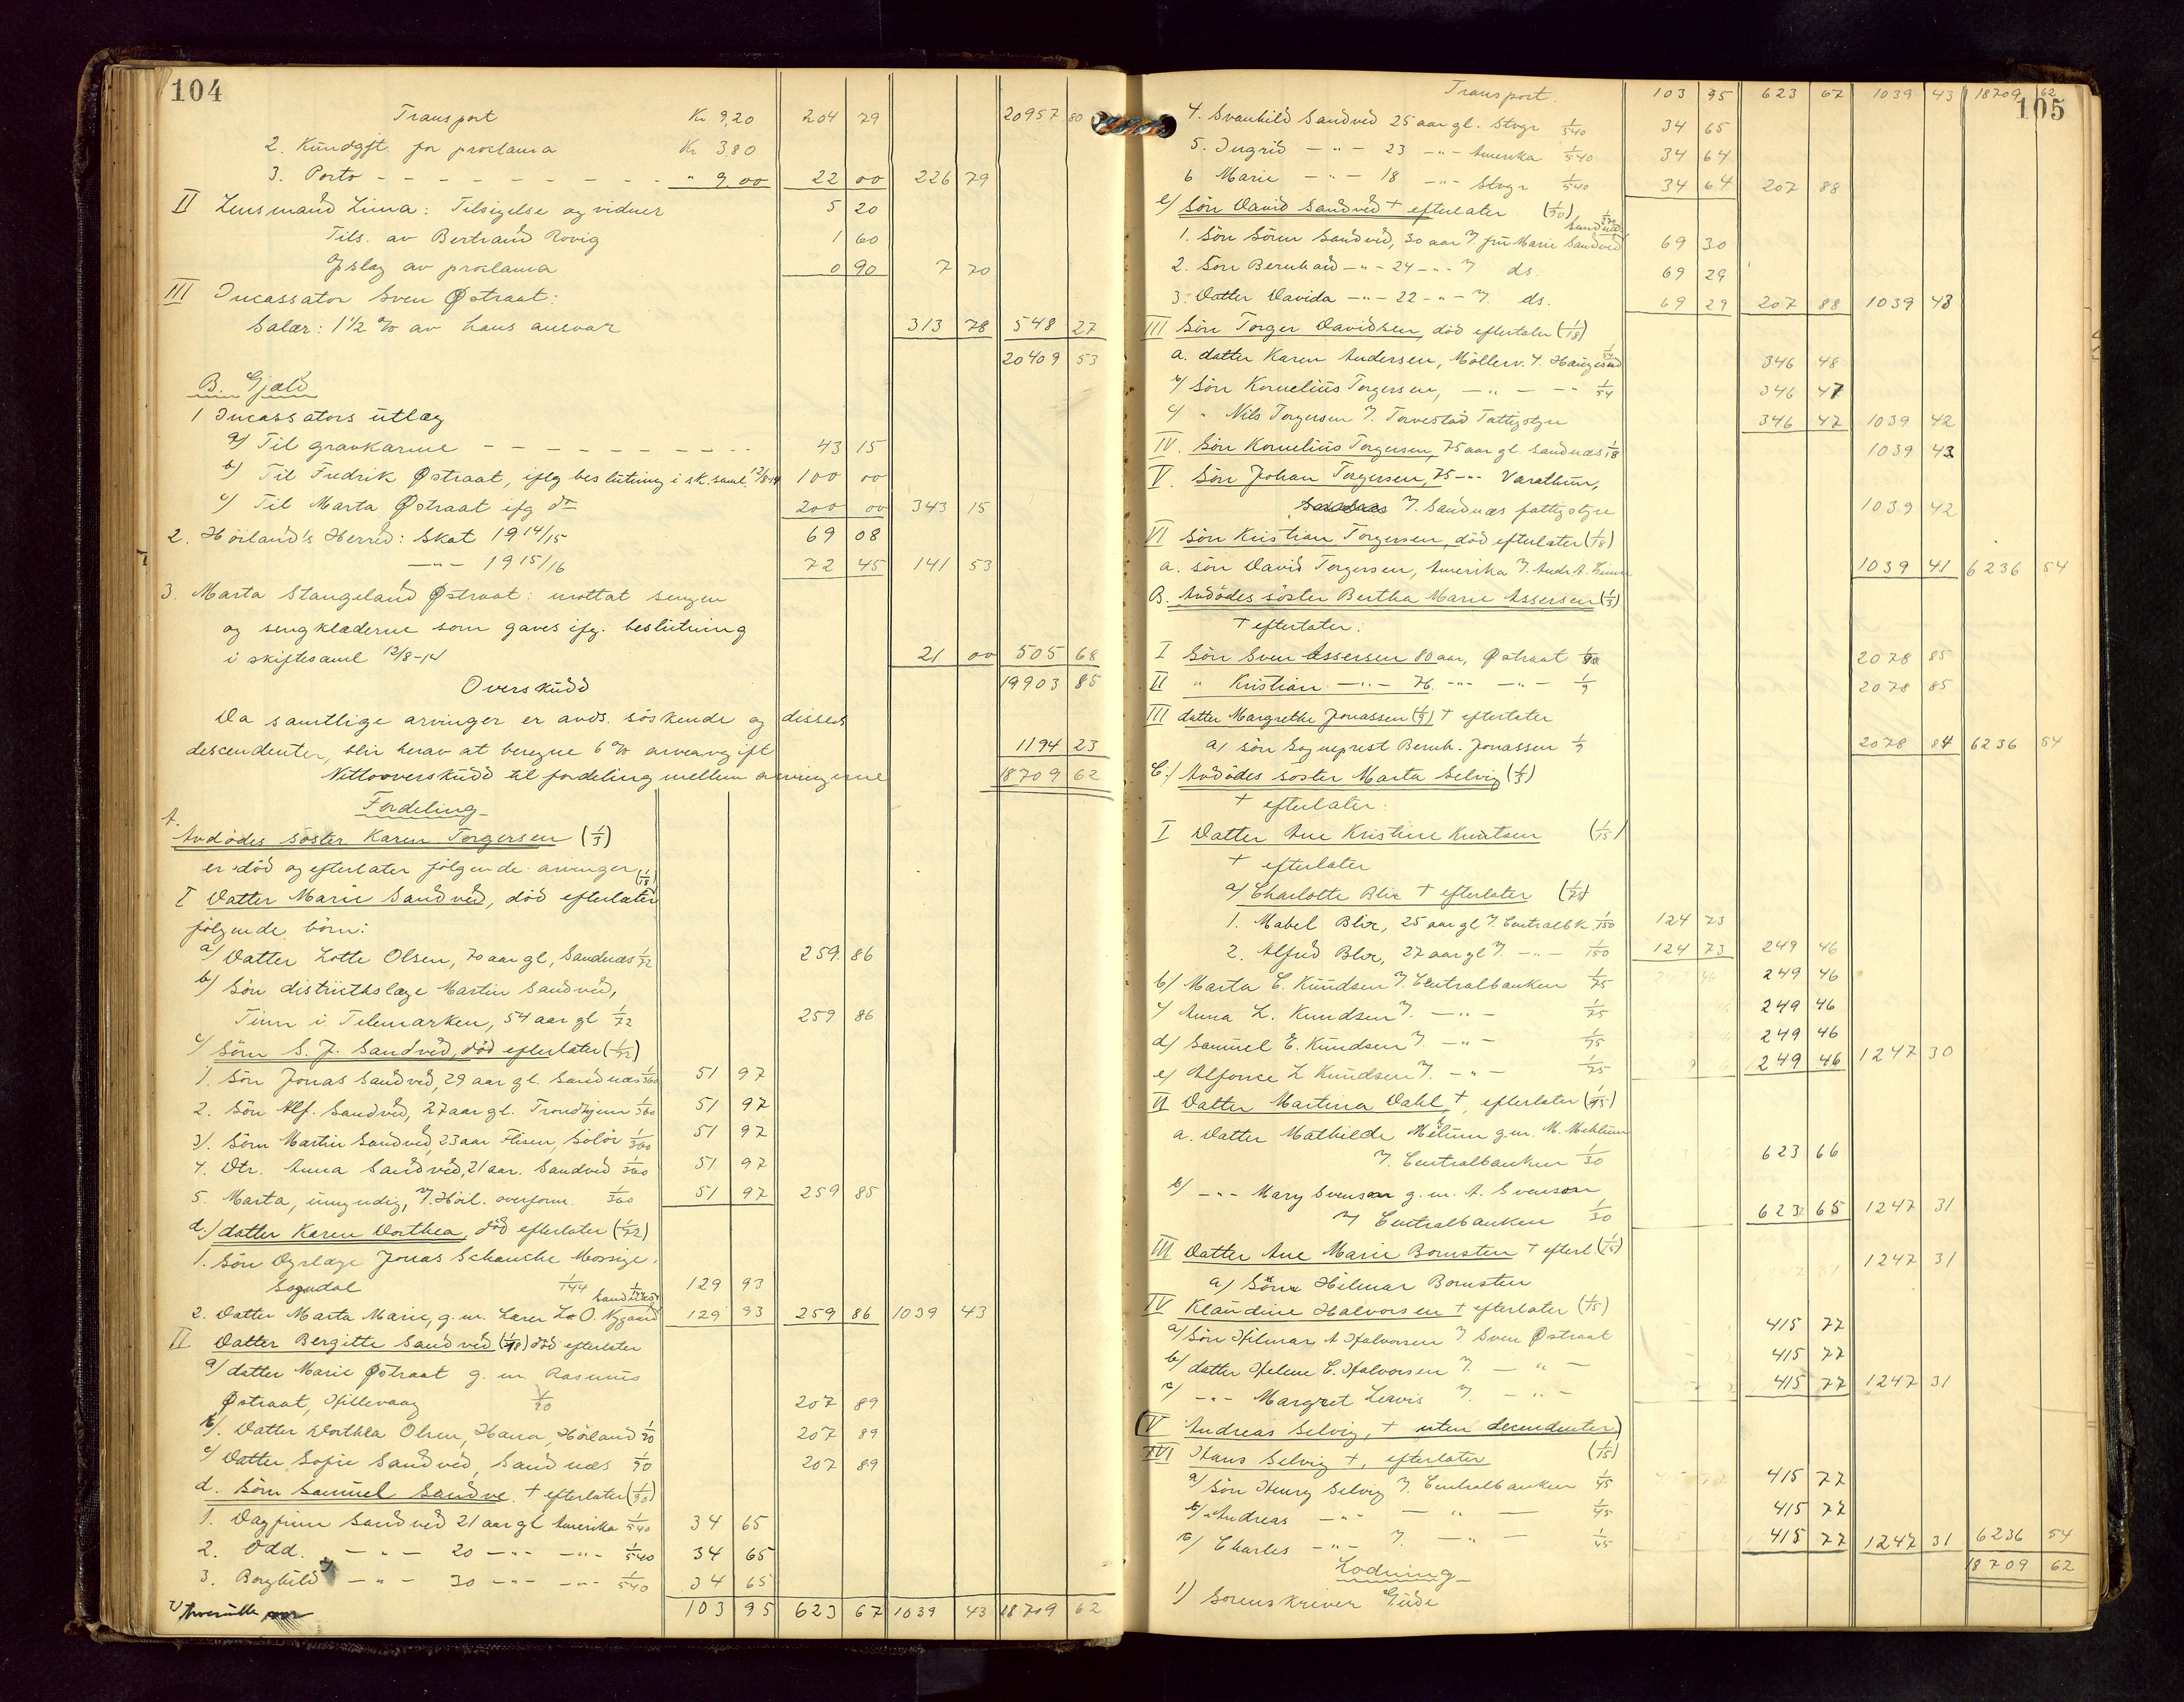 104
Transport Kr 9,20 204 79 20957 80
2. Kundgjt. for proclama Kr 3 80
3. Porto - - - - - - - - - " 9 00 22 00 226 79
II Lensmand Lima: Tilsigelse og vidner 5 20
Tils. av Bertrand Rovig 1 60
Opslag av proclama 0 90 7 70
III Incassator Sven Østraat:
Salær: 1 1/2 % av hans ansvar 313 78 548 27
20409 53
B. Gjæld
1 Incassators utlæg
a) Til gravkarme - - - - - - - - - 43 15
b) Til Fredrik Østraat, iflg beslutning i sk. saml. 12/8-14 100 00
c) Til Marta Østraat ifg do 200 00 343 15
2. Höiland's Herred: Skat 19 14/15 69 08
-"- 19 15/16 72 45 141 53
3. Marta Stangeland Østraat: mottat sengen
og sengklæderne som gaves ifg. beslutning
i skiftesaml 12/8-14 21 00 505 68
Overskudd 19903 85
Da samtlige arvinger er avds. söskende og disses
descendenter, blir herav at beregne 6 % arveavgift 1194 23
Nettooverskudd til fordeling mellem arvingerne 18709 62
Fordeling
A.
Avdödes söster Karen Torgersen (1/3)
er död og efterlater fölgende arvinger
I Datter Marie Sandved, död efterlater (1/18)
fölgende börn:
a) Datter Lotte Olsen, 70 aar gl, Sandnæs 1/72 259 86
b) Sön distriktslæge Martin Sandved,
Tinn i Telemarken, 54 aar gl 1/72 259 86
c) Sönn S. J. Sandved, död efterlater (1/72)
1. Sön Jonas Sandved, 29 aar gl. Sandnæs 1/360 51 97
2. Sön Alf. Sandved, 27 aar gl. Trondhjem 1/360 51 97
3). Sönn Martin Sandved, 23 aar Flisen, Solör 1/360 51 97
4. Dtr. Anna Sandved, 21 aar. Sandved 1/360 51 97
5. Marta, umyndig, 7. Höil. overform. 1/360 51 97 259 85
d.) datter Karen Dorthea, död efterlater (1/72)
1. Sön Dyrlæge Jonas Schanche Mossige.
Sogndal 1/144 129 93
2. Datter Marta Marie, g. m. Lærer L. O. Nygaard Sandnæs 1/144 129 93 259 86 1039 43
II Datter Bergitte Sandved (1/18) död efterlater
a) datter Marie Østraat g. m. Rasmus
Østraat, Hillevaag 1/90 207 89
b). Datter Dorthea Olsen, Hana, Höiland 1/90 207 89
c) Datter Sofie Sandved, Sandnæs 1/90 207 89
d. Sönn Samuel Sandve. + efterlater (1/90)
1. Dagfinn Sandved 21 aar gl Amerika 1/540 34 65
2. Odd. - " - 20 -"- -"- 1/540 34 65
3. Borghild - " - 30 -"- -"- 1/540 34 65
103 95 623 67 1039 43 18709 62
105
Transport. 103 95 623 67 1039 43 18709 62
4. Svanhild Sandved 25 aar gl. Stvgr 1/540 34 65
5. Ingrid - " - 23 -"- Amerika 1/540 34 64
6 Marie - " - 18 -"- Stvgr 1/540 34 64 207 88
e) Sön David Sandved + efterlater (1/90)
1. Sön Sören Sandved, 30 aar 7. fru Marie Sandved Sandnæs 1/270 69 30
2. Sön Bernhard -"- 24 -"- 7 ds. 69 29
3. Datter Davida -"- 22 -"- 7. ds. 69 29 207 88 1039 43
III Sön Torger Davidsen, död efterlater (1/18)
a. datter Karen Andersen, Möllerv. 4. Haugesund 1/54 346 48
b) Sön Kornelius Torgersen, -"- -"- 1/54 346 47
c) " Nils Torgersen 7. Torvestad Fattigstyre 346 47 1039 42
IV. Sön Kornelius Torgersen, 75 aar gl. Sandnæs 1/18 1039 43
V. Sön Johan Torgersen, 75 -"- Varathun,
7. Sandnæs fattigstyre 1039 42
VI Sön Kristian Torgersen, död efterlater (1/18)
a. sön David Torgersen, Amerika 7. Andr. A. Lima 1039 41 6236 54
B. Avdödes söster Bertha Marie Assersen (1/3)
+ efterlater:
I Sön Sven Assersen 80 aar, Østraat 1/9 2078 85
II " Kristian -"- 76. -"- -"- 1/9 2078 85
III datter Margrethe Jonassen (1/9) + efterlater
a) sön Sogneprest Bernh. Jonassen 1/9 2078 84 6236 54
C.) Avdödes söster Marta Selvig (1/3)
+ efterlater:
I Datter Ane Kristine Knutsen (1/15)
+ efterlater
a) Charlotte Blix + efterlater (1/75)
1. Mabel Blix, 25 aar gl 7. Centralb k. 1/150 124 73
2. Alfred Blix, 27 aar gl 7. -"- 1/150 124 73 249 46
b) Marta C. Knudsen 7. Centralbanken 1/75 249 46
c) Anna L. Knudsen 7. -"- 1/75 249 46
d) Samuel E. Knudsen 7. -"- 1/75 249 46
e) Alfonce L Knudsen 7. -"- 1/75 249 46 1247 30
II Datter Martina Dahl, +, efterlater (1/15)
a. Datter Mathilde Mélum g. m. M. Mehlum
7. Centralbanken 1/30 623 66
b) -"- Mary Svenson g. m. A. Svenson,
7) Centralbanken 1/30 623 65 1247 31
III Datter Ane Marie Bornsten + efterl. (1/15)
a) Sön Hilmar Bornsten 1247 31
IV Klaudine Halvorsen + efterlater (1/15)
a) Sön Hilmar A Halvorsen 7. Sven Østraat 415 77
b) datter Helene C. Halvorsen 7. - " - 415 77
c) -"- Margret Lewis 7. - " - 415 77 1247 31
(V Andreas Selvig, + uten decendenter)
VI Hans Selvig +, efterlater (1/15)
a) Sön Henry Selvig 7. Centralbanken 1/45 415 77
b) " Andreas -"- - " - 1/45 415 77
c) Charles -"- 7. -"- 1/45 415 77 1247 31 6236 54
Lodning 18709 62
1) Sorenskriver Gude